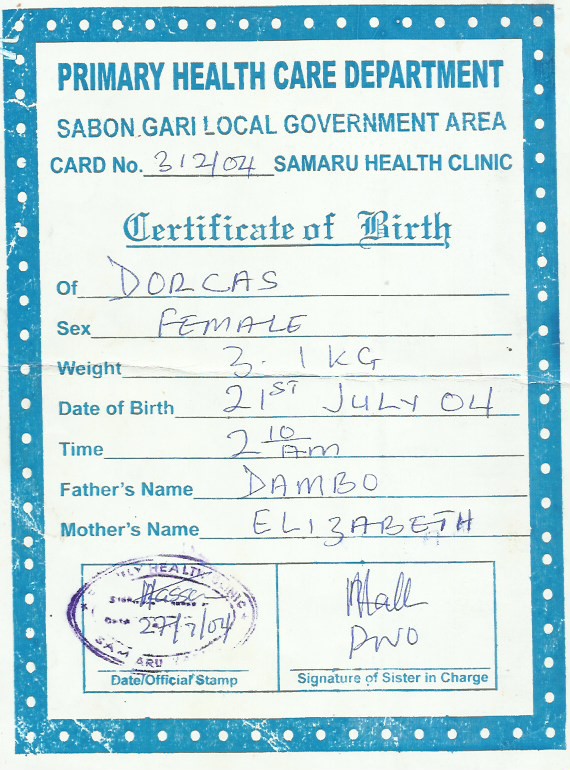 PRIMARY HEALTH CARE DEPARTMENT
SABON GARI LOCAL GOVERNMENT AREA
CARD No. 312/04 SAMARU HEALTH CLINIC
Certificate of Birth
Of DORCAS
Sex FEMALE
Weight 3.1KG
Date of Birth 21ST JULY 04
Time 2 10 AM
Father's Name DAMBO
Mother's Name ELIZABETH
HEALTH CLINIC
27/7/04
SAMARU
PNO
Date/Official Stamp
Signature of Sister in Charge